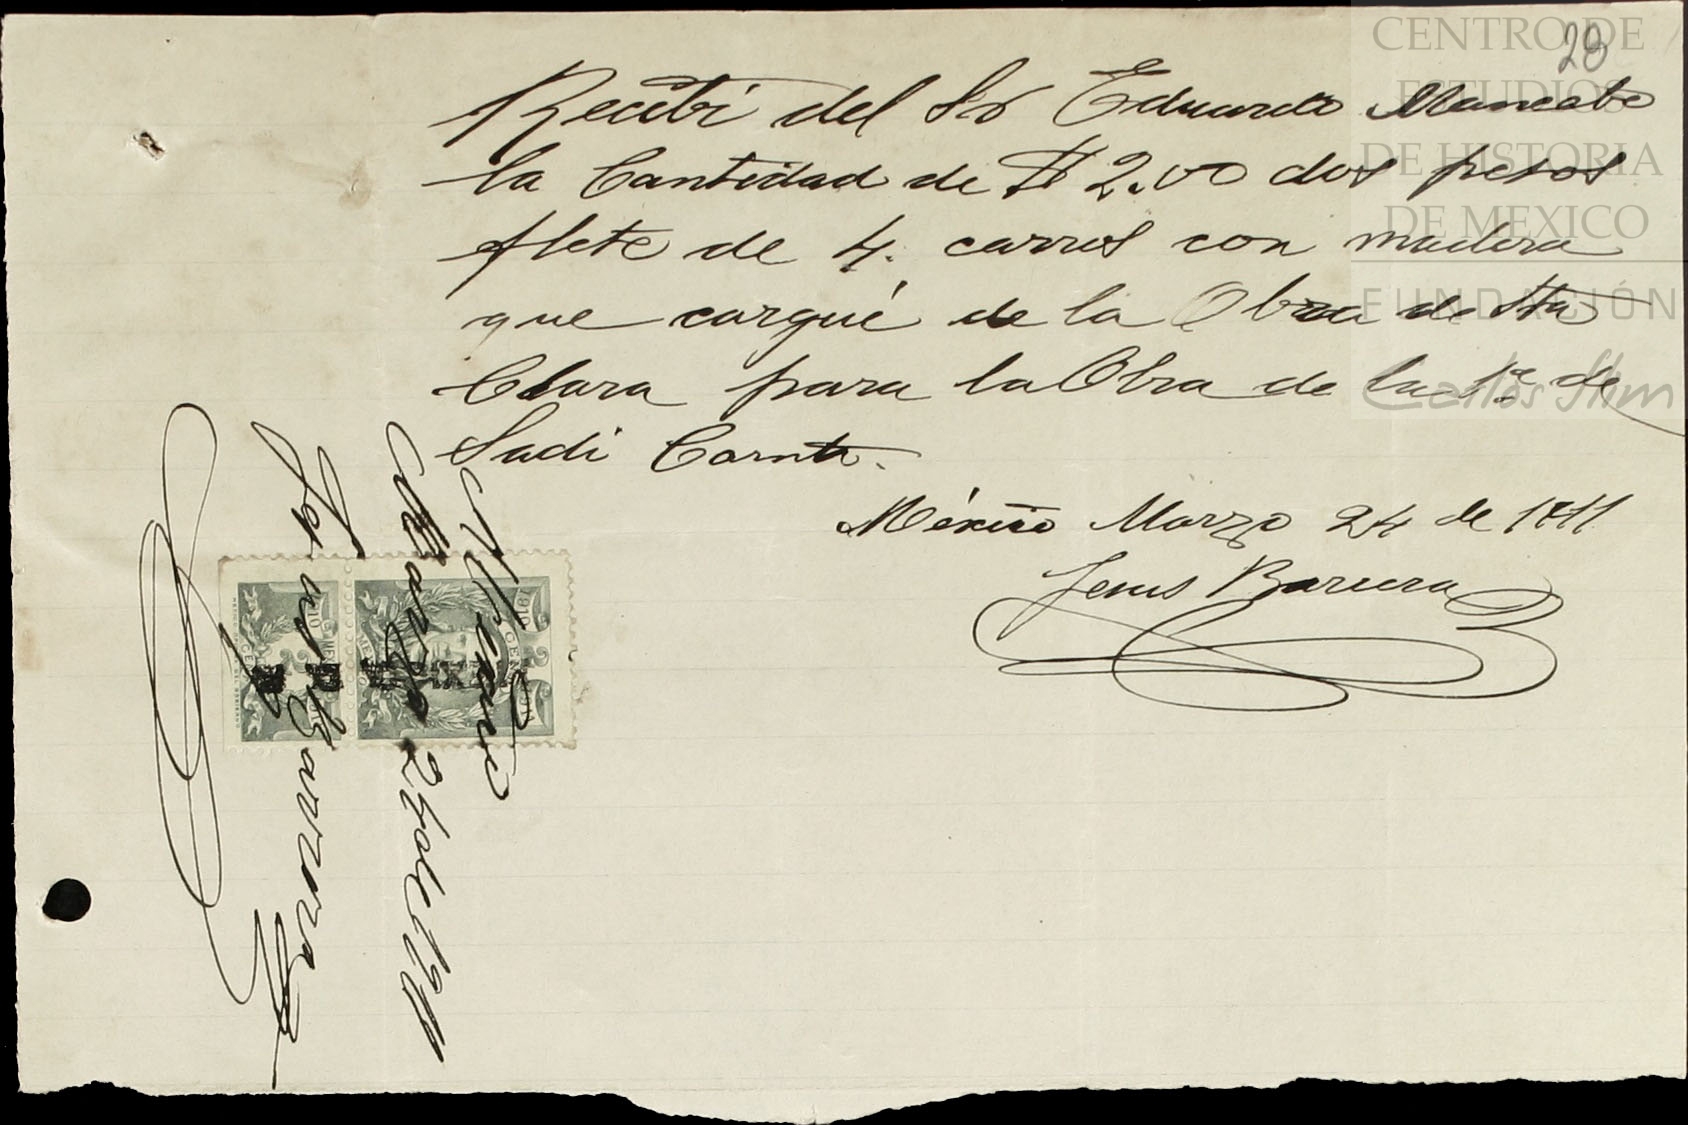 28
Recibi del Sr Eduardo
la Cantidad de $ 2.00 dos pesos
flete de 4. carros con madera
que cargué de la Obra de Sta
Clara para la Obra de la 1a de
Sadi Carnt.
México Marzo 24 de 1911
Jesus Barrera
México
Marzo 24 de 1911
Jesus Barrera
CENTRO DE
ESTUDIOS
DE HISTORIA
DE MEXICO
FUNDACIÓN
Carlos Slim
1910